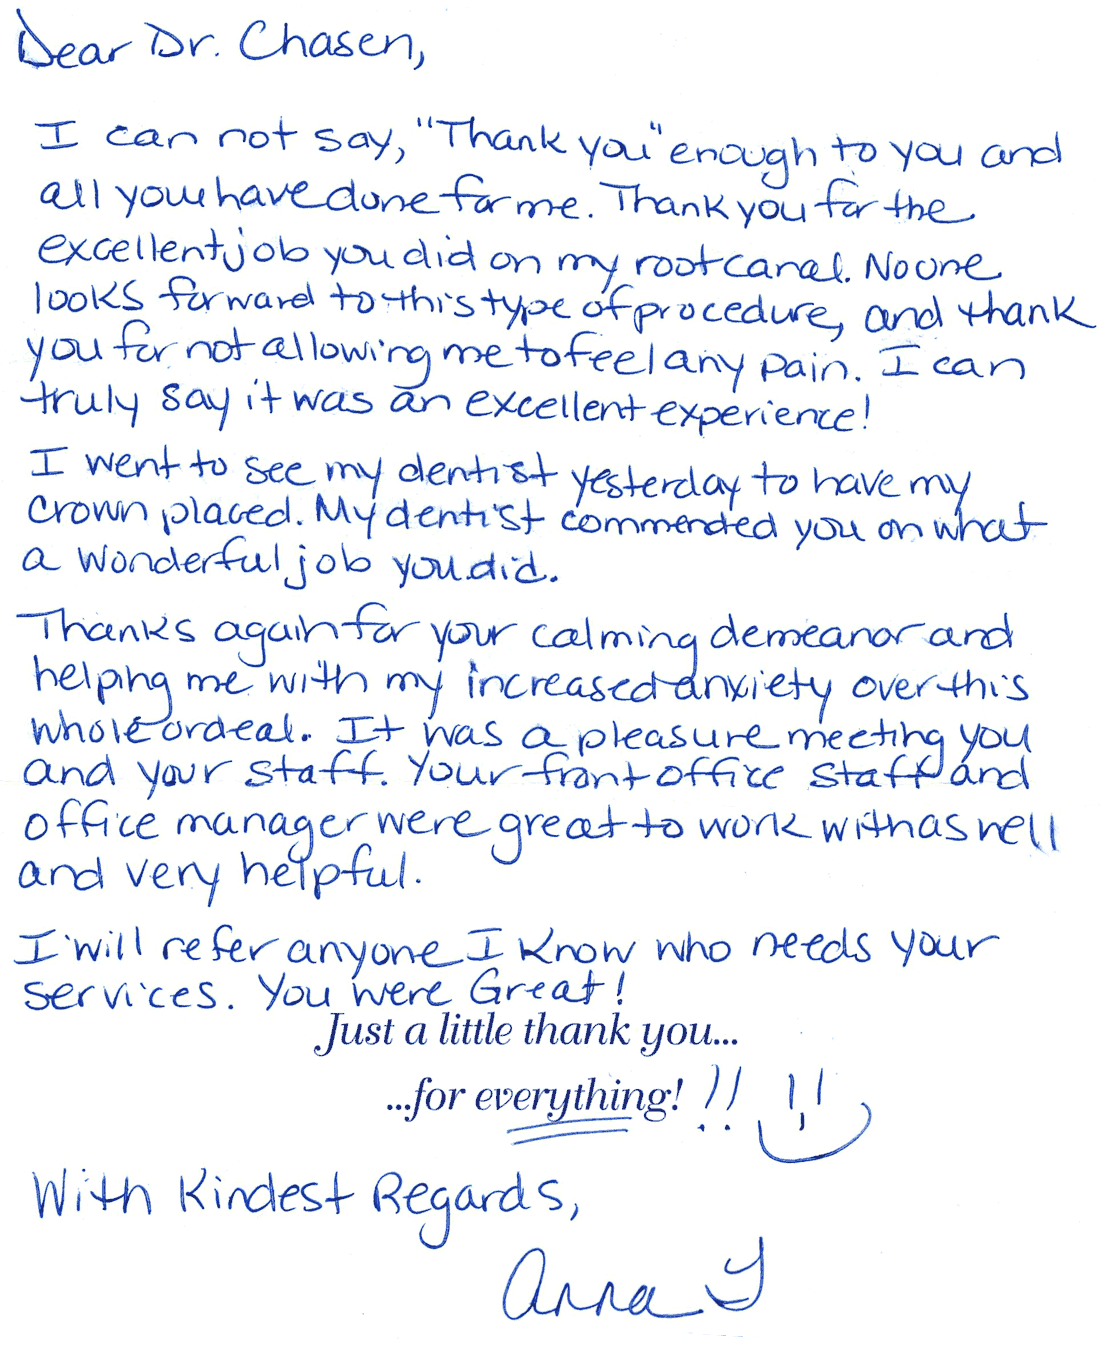 Dear Dr. Chasen,
I can not say, "Thank you" enough to you and
all you have done for me. Thank you for the
excellent job you did on my root canal. No one
looks forward to this type of procedure, and thank
you for not allowing me to feel any pain. I can
truly say it was an excellent experience!
I went to see my dentist yesterday to have my
crown placed. My dentist commended you on what
a wonderful job you did.
Thanks again for your calming demeanor and
helping me with my increased anxiety over this
whole ordeal. It was a pleasure meeting you
and your staff. Your front office staff and
office manager were great to work with as well
and very helpful.
I will refer anyone I know who needs your
services. You were Great!
Just a little thank you...
...for everything! !!
With Kindest Regards,
Anna Y